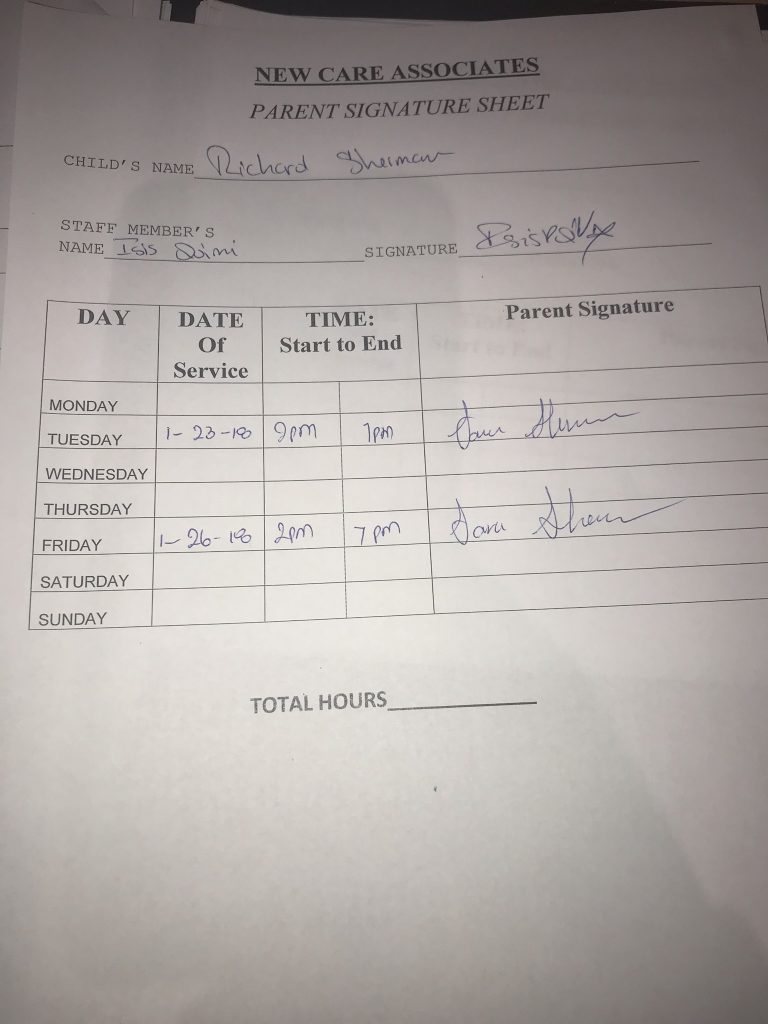 NEW CARE ASSOCIATES
PARENT SIGNATURE SHEET
CHILD'S NAME Richard Sherman
STAFF MEMBER'S
NAME Isis SIGNATURE
DAY DATE Of Service TIME: Start to End Parent Signature
MONDAY
TUESDAY 1-23-18 pm 7pm
WEDNESDAY
THURSDAY
FRIDAY 1-26-18 2pm 7pm Sara
SATURDAY
SUNDAY
TOTAL HOURS